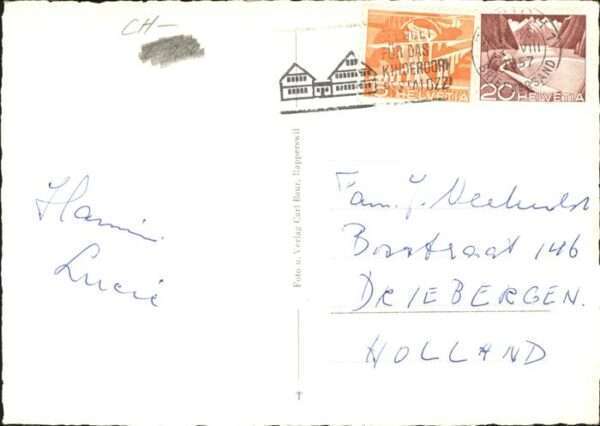 CH-
FÜR DAS
KINDERDORF
PESTALOZZI
VIII
1957
5 HELVETIA
20 HELVETIA
Foto u. Verlag Carl Baur, Rapperswil
Hanni
Lucie
Fam. J.
Bosstraat 146
DRIEBERGEN.
HOLLAND